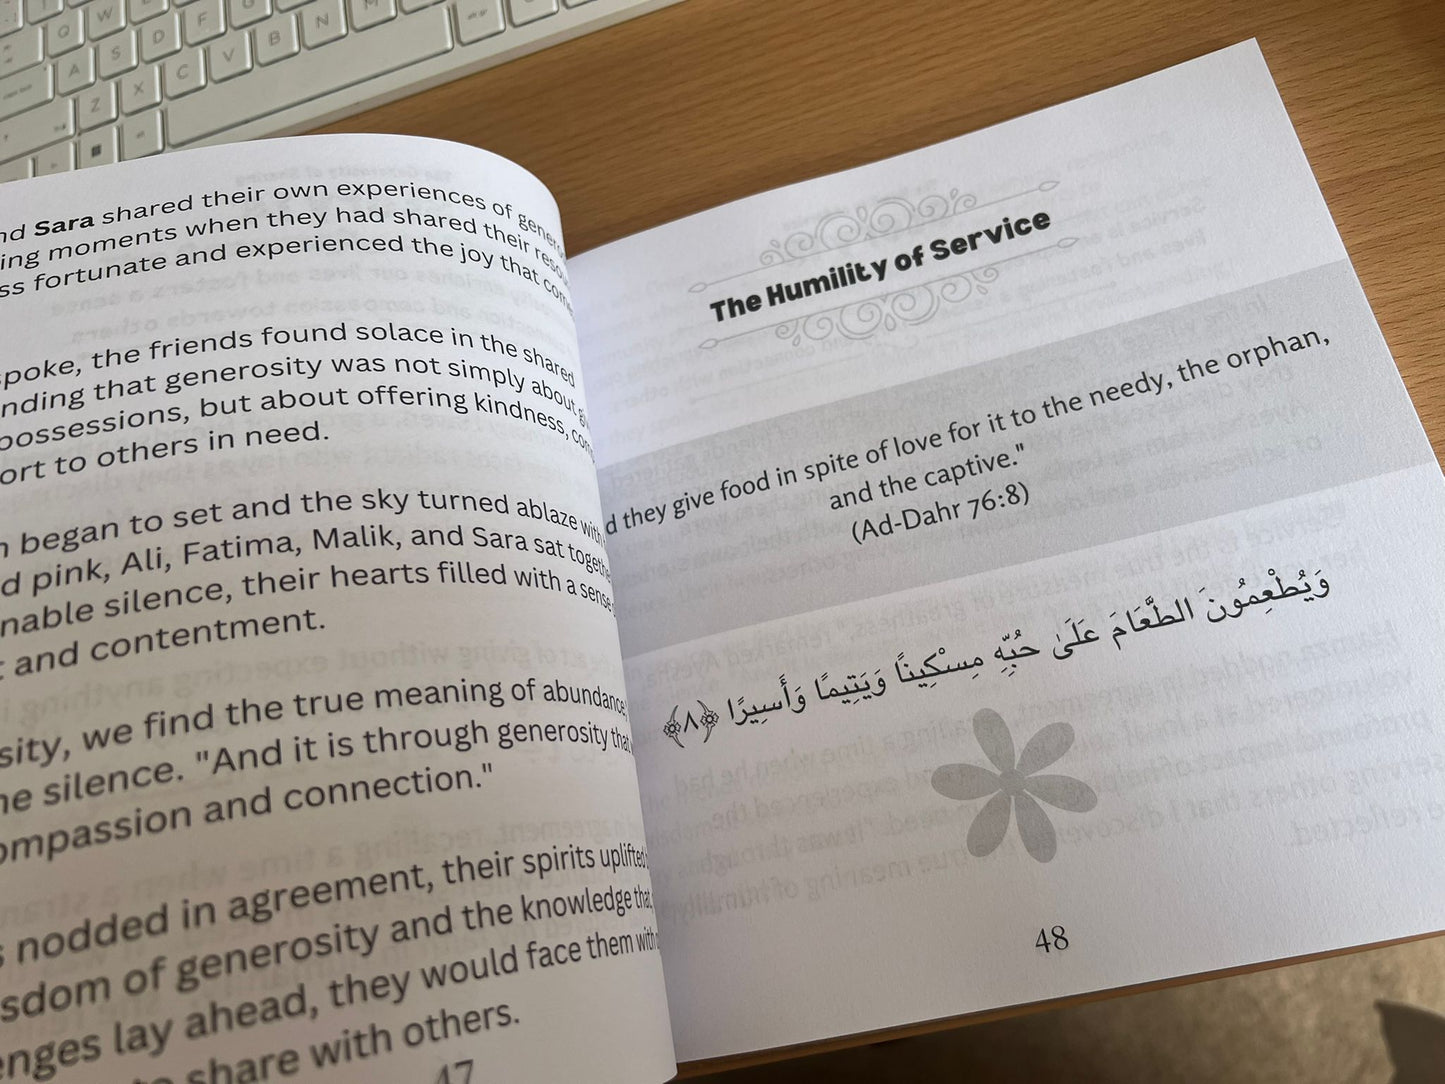 Sara shared their own experiences of
moments when they had shared their
fortunate and experienced the joy that
the friends found solace in the shared
that generosity was not simply about
possessions, but about offering kindness,
to others in need.
began to set and the sky turned ablaze with
pink, Ali, Fatima, Malik, and Sara sat
silence, their hearts filled with a sense
and contentment.
we find the true meaning of abundance
silence. "And it is through generosity that
and connection."
nodded in agreement, their spirits uplifted
of generosity and the knowledge that
lay ahead, they would face them with
share with others.
47
The Humility of Service
they give food in spite of love for it to the needy, the orphan,
and the captive."
(Ad-Dahr 76:8)
وَيُطْعِمُونَ الطَّعَامَ عَلَىٰ حُبِّهِ مِسْكِينًا وَيَتِيمًا وَأَسِيرًا ﴿٨﴾
48